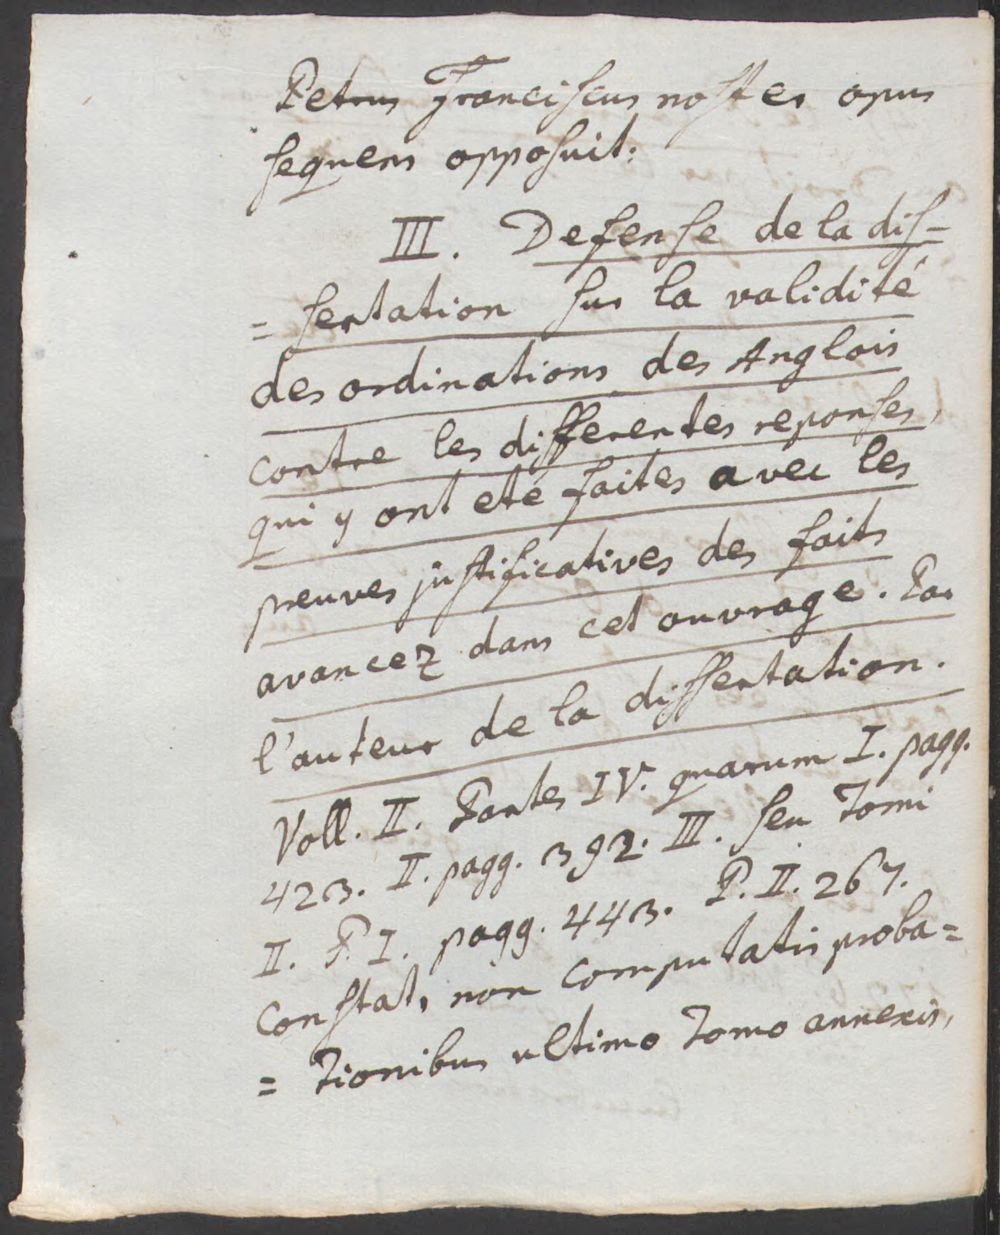 Petrus Franciscus noster opus
sequens opposuit:
III. Defense de la dis-
= sertation sur la validité
des ordinations des Anglois
contre les differentes reponses,
qui y ont eté faites avec les
preuves justificatives des faits
avancez dans cet ouvrage. Par
l'auteur de la dissertation.
Voll. II. Partes IV. quarum I. pagg.
423. II. pagg. 392. III. seu Tomi
II. P. I. pagg. 443. P. II. 267.
constat, non computatis proba=
= tionibus ultimo Tomo annexis,